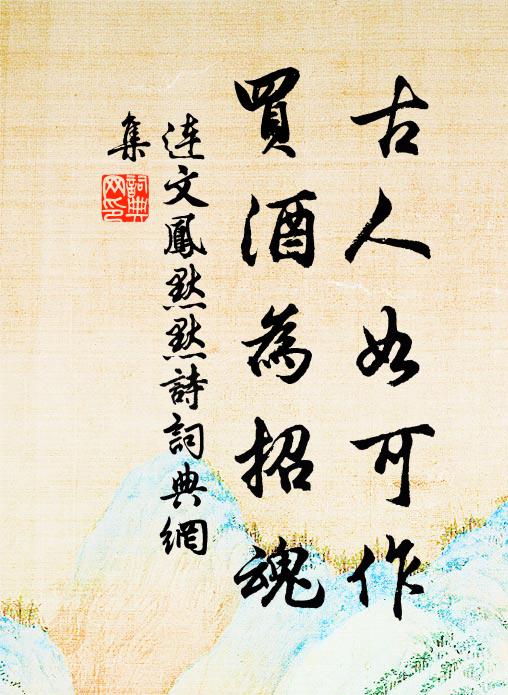 古人如可作
買酒為招魂
連文鳳默默詩詞典網
集
詞典網印